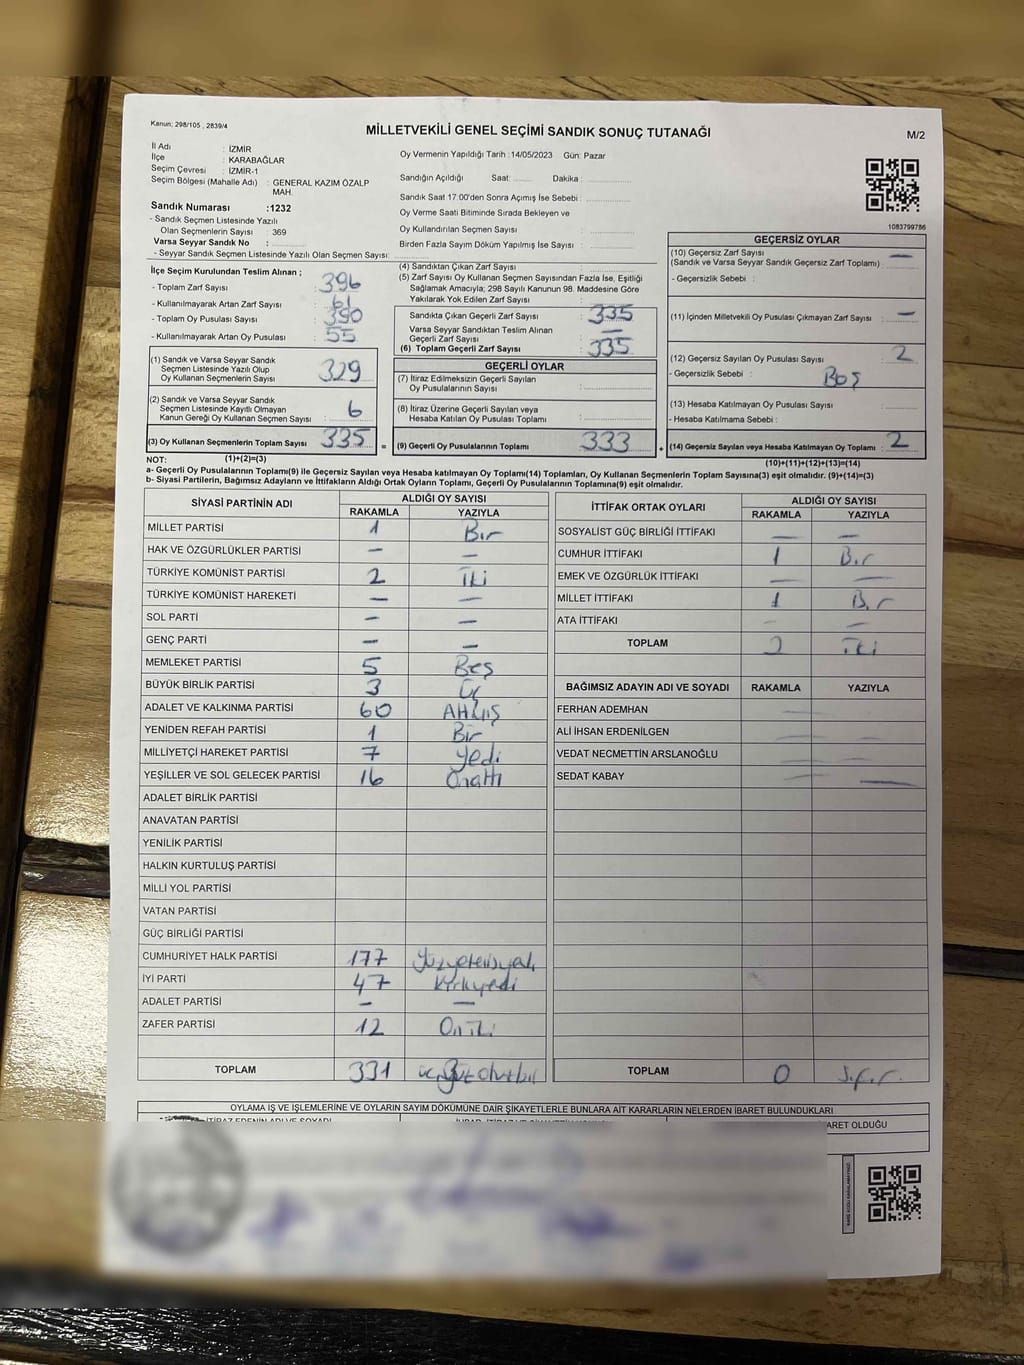 Kanun: 298/105 , 2839/4
MİLLETVEKİLİ GENEL SEÇİMİ SANDIK SONUÇ TUTANAĞI
M/2
İl Adı : İZMİR
İlçe : KARABAĞLAR
Seçim Çevresi : İZMİR-1
Seçim Bölgesi (Mahalle Adı) : GENERAL KAZIM ÖZALP
MAH.
Sandık Numarası :1232
- Sandık Seçmen Listesinde Yazılı
Olan Seçmenlerin Sayısı : 369
Varsa Seyyar Sandık No :
- Seyyar Sandık Seçmen Listesinde Yazılı Olan Seçmen Sayısı:
Oy Vermenin Yapıldığı Tarih :14/05/2023 Gün: Pazar
Sandığın Açıldığı Saat: Dakika :
Sandık Saat 17:00'den Sonra Açımış İse Sebebi :
Oy Verme Saati Bitiminde Sırada Bekleyen ve
Oy Kullandırılan Seçmen Sayısı :
Birden Fazla Sayım Döküm Yapılmış İse Sayısı :
1083799786
İlçe Seçim Kurulundan Teslim Alınan ;
- Toplam Zarf Sayısı : 396
- Kullanılmayarak Artan Zarf Sayısı : 61
- Toplam Oy Pusulası Sayısı : 390
- Kullanılmayarak Artan Oy Pusulası : 55
(1) Sandık ve Varsa Seyyar Sandık
Seçmen Listesinde Yazılı Olup
Oy Kullanan Seçmenlerin Sayısı : 329
(2) Sandık ve Varsa Seyyar Sandık
Seçmen Listesinde Kayıtlı Olmayan
Kanun Gereği Oy Kullanan Seçmen Sayısı : 6
(3) Oy Kullanan Seçmenlerin Toplam Sayısı : 335 =
(4) Sandıktan Çıkan Zarf Sayısı :
(5) Zarf Sayısı Oy Kullanan Seçmen Sayısından Fazla İse, Eşitliği
Sağlamak Amacıyla; 298 Sayılı Kanunun 98. Maddesine Göre
Yakılarak Yok Edilen Zarf Sayısı :
Sandıkta Çıkan Geçerli Zarf Sayısı : 335
Varsa Seyyar Sandıktan Teslim Alınan
Geçerli Zarf Sayısı : —
(6) Toplam Geçerli Zarf Sayısı : 335
GEÇERLİ OYLAR
(7) İtiraz Edilmeksizin Geçerli Sayılan
Oy Pusulalarının Sayısı :
(8) İtiraz Üzerine Geçerli Sayılan veya
Hesaba Katılan Oy Pusulası Toplamı :
(9) Geçerli Oy Pusulalarının Toplamı : 333 +
GEÇERSİZ OYLAR
(10) Geçersiz Zarf Sayısı
(Sandık ve Varsa Seyyar Sandık Geçersiz Zarf Toplamı) : —
- Geçersizlik Sebebi :
(11) İçinden Milletvekili Oy Pusulası Çıkmayan Zarf Sayısı : —
(12) Geçersiz Sayılan Oy Pusulası Sayısı : 2
- Geçersizlik Sebebi : Boş
(13) Hesaba Katılmayan Oy Pusulası Sayısı :
- Hesaba Katılmama Sebebi :
(14) Geçersiz Sayılan veya Hesaba Katılmayan Oy Toplamı : 2
NOT: (1)+(2)=(3)
(10)+(11)+(12)+(13)=(14)
a- Geçerli Oy Pusulalarının Toplamı(9) ile Geçersiz Sayılan veya Hesaba katılmayan Oy Toplamı(14) Toplamları, Oy Kullanan Seçmenlerin Toplam Sayısına(3) eşit olmalıdır. (9)+(14)=(3)
b- Siyasi Partilerin, Bağımsız Adayların ve İttifakların Aldığı Ortak Oyların Toplamı, Geçerli Oy Pusulalarının Toplamına(9) eşit olmalıdır.
SİYASİ PARTİNİN ADI ALDIĞI OY SAYISI
RAKAMLA YAZIYLA
MİLLET PARTİSİ 1 Bir
HAK VE ÖZGÜRLÜKLER PARTİSİ — —
TÜRKİYE KOMÜNİST PARTİSİ 2 İki
TÜRKİYE KOMÜNİST HAREKETİ — —
SOL PARTİ — —
GENÇ PARTİ — —
MEMLEKET PARTİSİ 5 Beş
BÜYÜK BİRLİK PARTİSİ 3 Üç
ADALET VE KALKINMA PARTİSİ 60 Altmış
YENİDEN REFAH PARTİSİ 1 Bir
MİLLİYETÇİ HAREKET PARTİSİ 7 Yedi
YEŞİLLER VE SOL GELECEK PARTİSİ 16 Onaltı
ADALET BİRLİK PARTİSİ
ANAVATAN PARTİSİ
YENİLİK PARTİSİ
HALKIN KURTULUŞ PARTİSİ
MİLLİ YOL PARTİSİ
VATAN PARTİSİ
GÜÇ BİRLİĞİ PARTİSİ
CUMHURİYET HALK PARTİSİ 177
İYİ PARTİ 47 Kırkyedi
ADALET PARTİSİ — —
ZAFER PARTİSİ 12 Oniki
TOPLAM 331
İTTİFAK ORTAK OYLARI ALDIĞI OY SAYISI
RAKAMLA YAZIYLA
SOSYALİST GÜÇ BİRLİĞİ İTTİFAKI — —
CUMHUR İTTİFAKI 1 Bir
EMEK VE ÖZGÜRLÜK İTTİFAKI — —
MİLLET İTTİFAKI 1 Bir
ATA İTTİFAKI — —
TOPLAM 2 İki
BAĞIMSIZ ADAYIN ADI VE SOYADI RAKAMLA YAZIYLA
FERHAN ADEMHAN — —
ALİ İHSAN ERDENİLGEN — —
VEDAT NECMETTİN ARSLANOĞLU — —
SEDAT KABAY — —
TOPLAM 0 Sıfır
OYLAMA İŞ VE İŞLEMLERİNE VE OYLARIN SAYIM DÖKÜMÜNE DAİR ŞİKAYETLERLE BUNLARA AİT KARARLARIN NELERDEN İBARET BULUNDUKLARI
ARET OLDUĞU